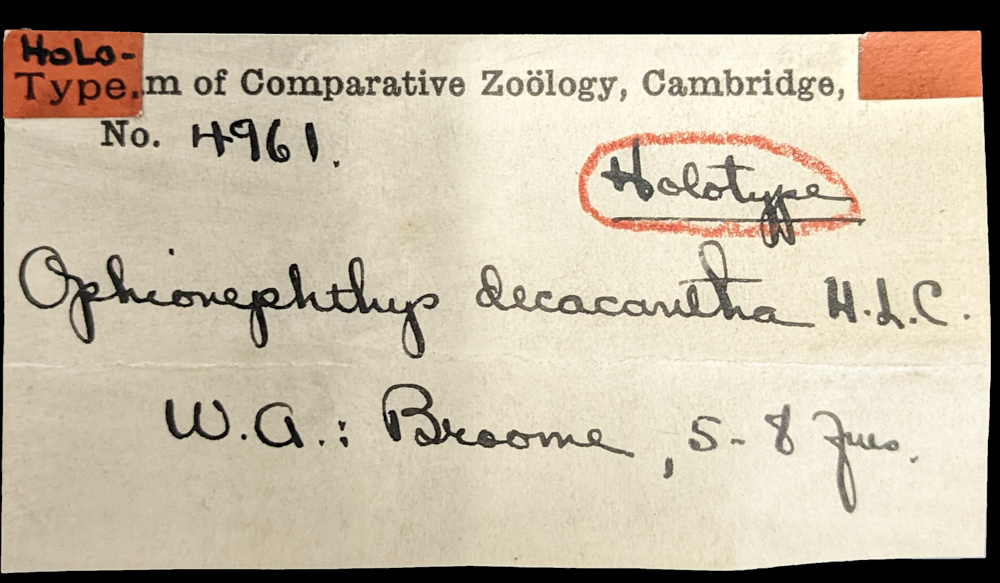 HoLo-
Type.m of Comparative Zoölogy, Cambridge,
No. 4961.
Holotype
Ophionephthys decacantha H.L.C.
W.A.: Broome, 5-8 fms.